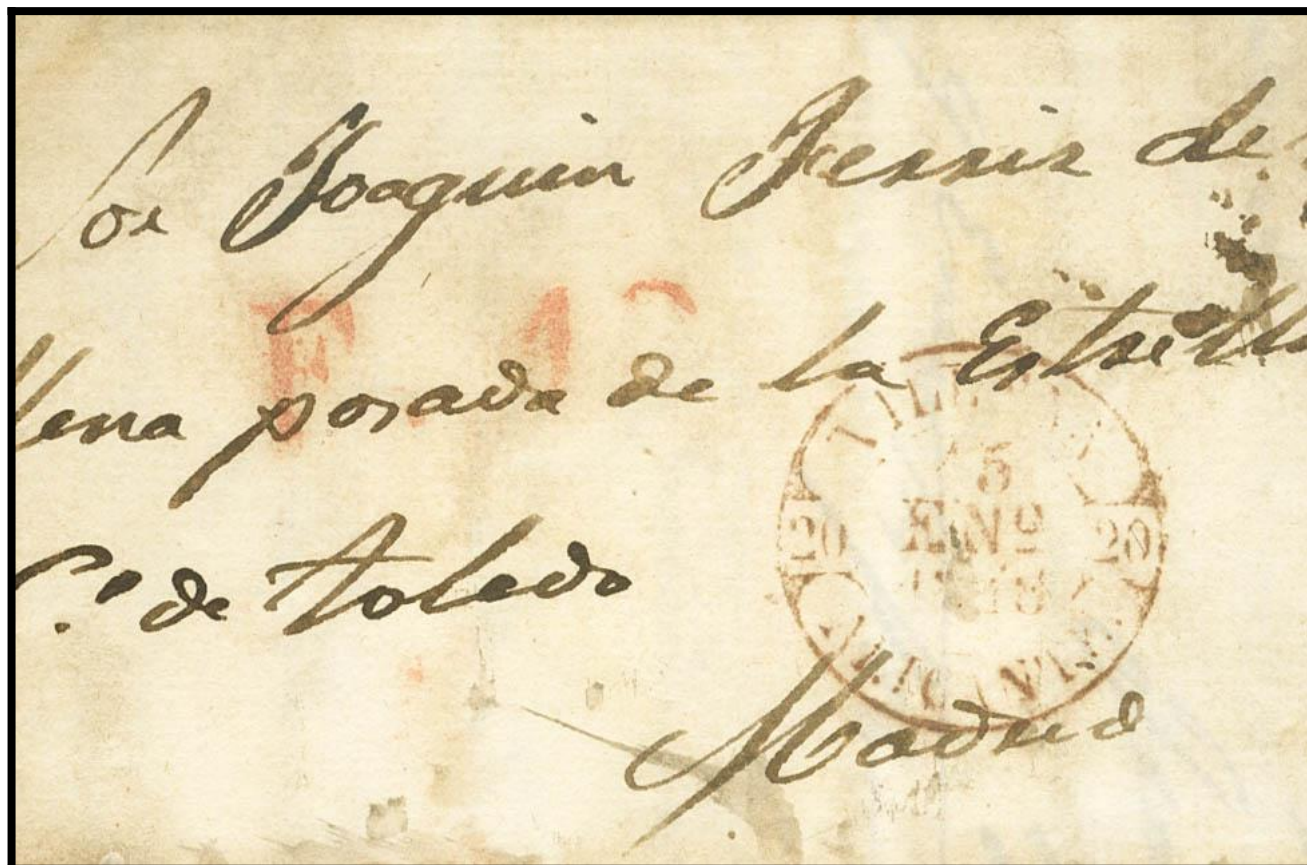 Sor Joaquin Ferriz de
llena posada de la Estrell
C.e de toledo
Madrid
5
ENº
20 20
ALICANTE